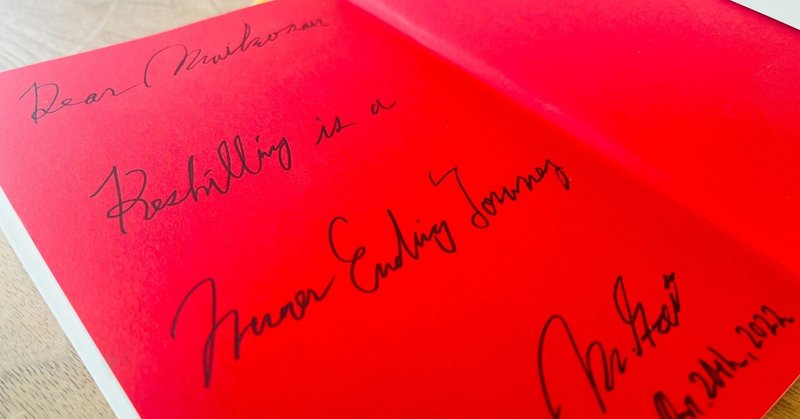 Dear Maikosan
Reskilling is a
Never Ending Journey
24th, 2022